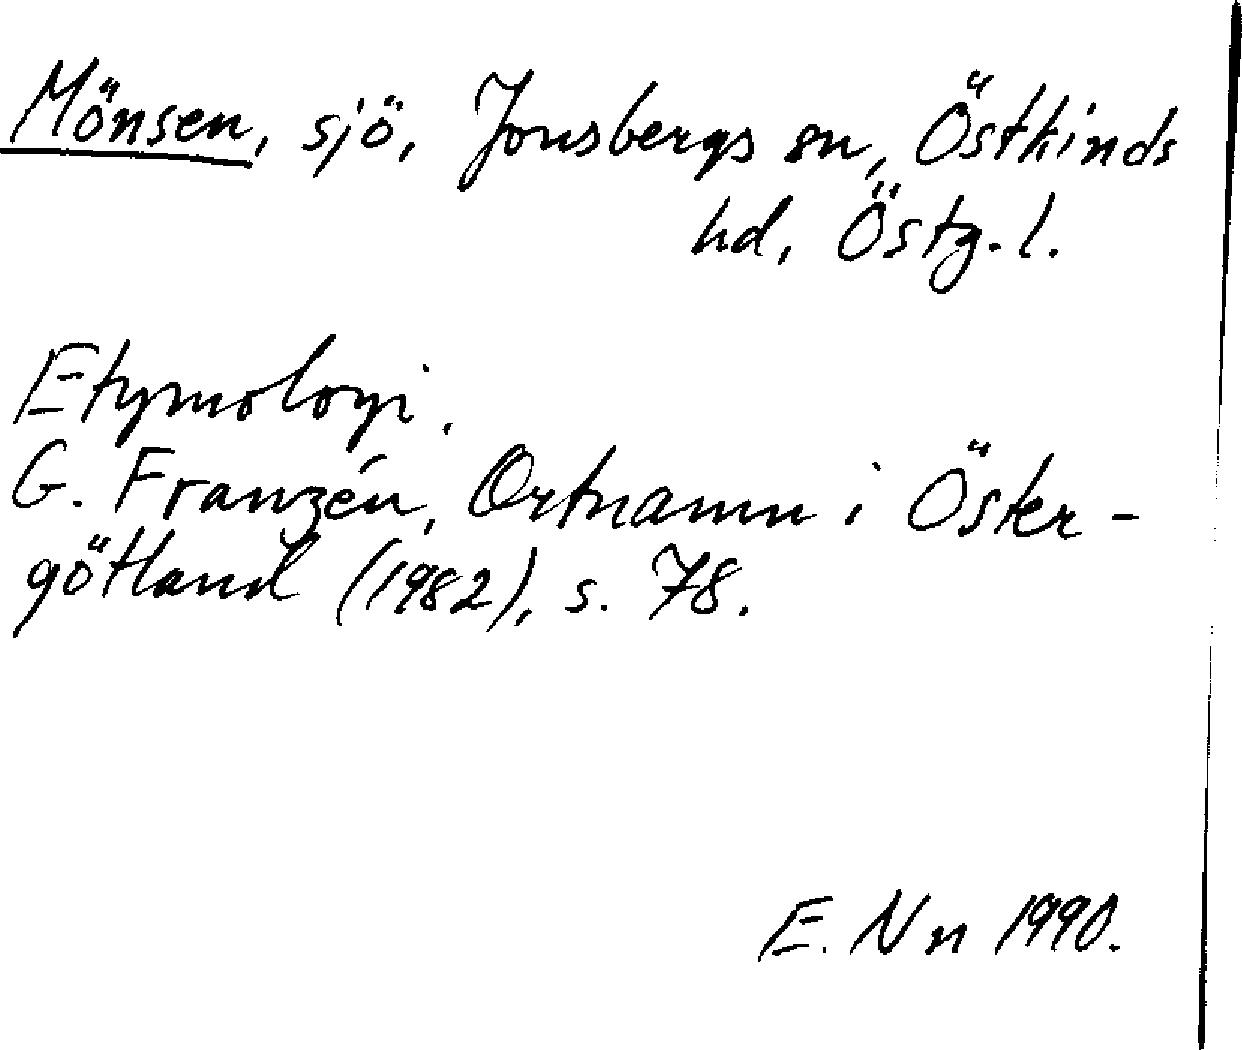 Mönsen, sjö, Jonsbergs sn, Östkinds
hd, Östg. l.
Etymologi.
G. Franzén, Ortnamn i Öster-
götland (1982), s. 78.
E. Nn 1990.